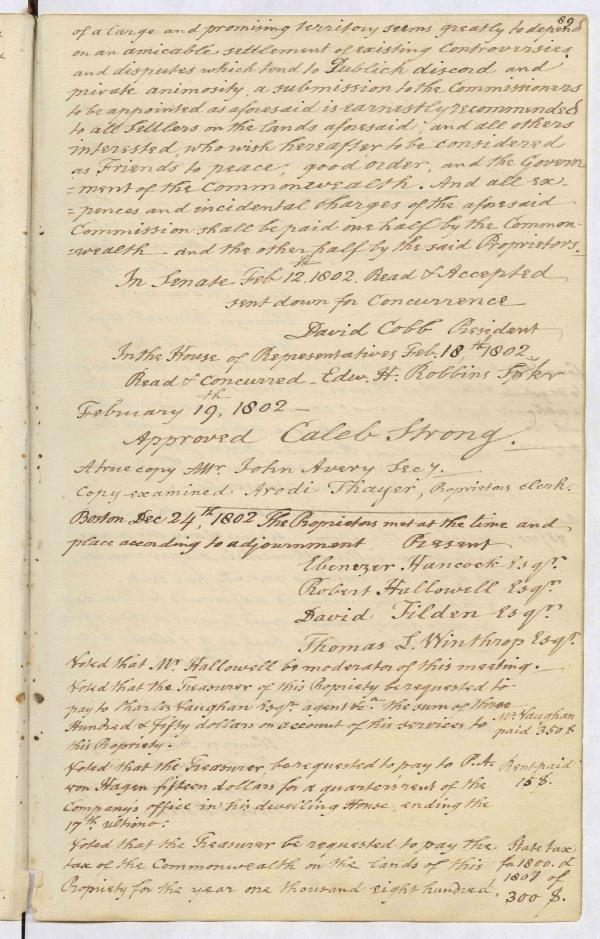 89
of a large and promising territory seems greatly to depend
on an amicable settlement of existing Controversies
and disputes which tend to Publick discord and
private animosity, a submission to the Commissioners
to be appointed as aforesaid is earnestly recommended
to all Settlers on the lands aforesaid, and all others
interested, who wish hereafter to be considered
as Friends to peace, good order, and the Govern-
=ment of the Commonwealth. And all ex-
=pences and incidental charges of the aforesaid
Commission shall be paid one half by the Common-
=wealth and the other half by the said Proprietors.
In Senate Feb 12th, 1802. Read & Accepted
sent down for Concurrence
David Cobb President
In the House of Representatives Feb. 18th, 1802
Read & concurred - Edw. H. Robbins Spkr
February 19th, 1802 -
Approved Caleb Strong.
A true copy Attr. John Avery Secy.
Copy examined Arodi Thayer, Proprietors clerk.
Boston Dec 24th, 1802 The Proprietors met at the time and
place according to adjournment Present
Ebenezer Hancock Esqr.
Robert Hallowell Esqr.
David Tilden Esqr.
Thomas L. Winthrop Esqr.
Voted that Mr. Hallowell be moderator of this meeting.
Voted that the Treasurer of this Propriety be requested to
pay to Charles Vaughan Esqr. agent &c.a the sum of three
Hundred & fifty dollars on account of his services to
this Propriety.
Mr. Vaughan
paid 350 $
Voted that the Treasurer be requested to pay to P. A.
von Hagen fifteen dollars for a quarter's rent of the
Company's office in his dwelling House, ending the
17th ultimo.
Rent paid
15 $.
Voted that the Treasurer be requested to pay the
tax of the Commonwealth on the lands of this
Propriety for the year one thousand eight hundred,
State tax
for 1800. &
1801 of
300 $.